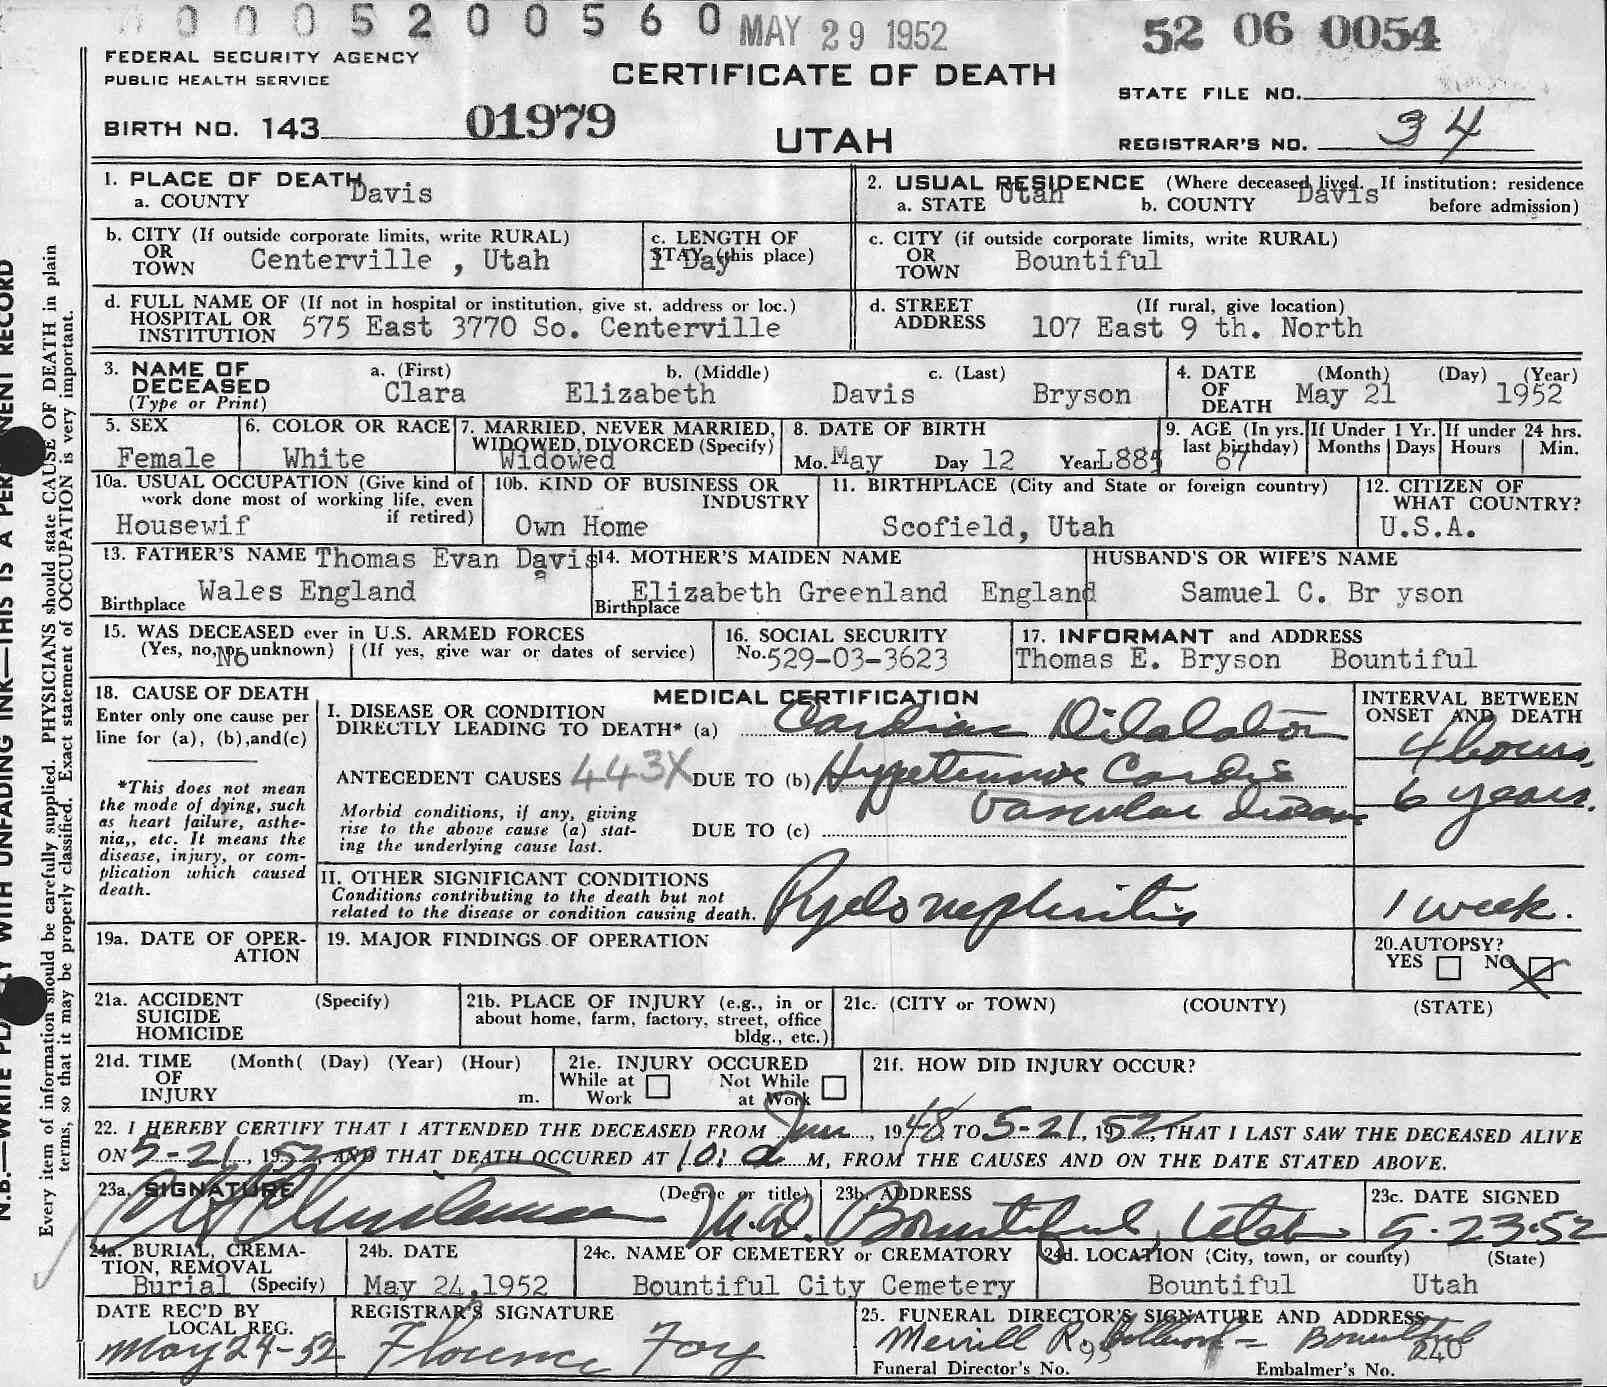 0 0 0 5 2 0 0 5 6 0 MAY 29 1952 52 06 0054
FEDERAL SECURITY AGENCY
PUBLIC HEALTH SERVICE
CERTIFICATE OF DEATH
STATE FILE NO.
BIRTH NO. 143 01979
UTAH
REGISTRAR'S NO. 34
1. PLACE OF DEATH
a. COUNTY Davis
2. USUAL RESIDENCE (Where deceased lived. If institution: residence
a. STATE Utah b. COUNTY Davis before admission)
b. CITY (If outside corporate limits, write RURAL)
OR
TOWN Centerville , Utah
c. LENGTH OF
STAY (this place) 1 Day
c. CITY (if outside corporate limits, write RURAL)
OR
TOWN Bountiful
d. FULL NAME OF (If not in hospital or institution, give st. address or loc.)
HOSPITAL OR
INSTITUTION 575 East 3770 So. Centerville
d. STREET (If rural, give location)
ADDRESS 107 East 9 th. North
3. NAME OF a. (First) b. (Middle) c. (Last)
DECEASED Clara Elizabeth Davis Bryson
(Type or Print)
4. DATE (Month) (Day) (Year)
OF May 21 1952
DEATH
5. SEX
Female
6. COLOR OR RACE
White
7. MARRIED, NEVER MARRIED,
WIDOWED, DIVORCED (Specify)
Widowed
8. DATE OF BIRTH
Mo. May Day 12 Year L885
9. AGE (In yrs.
last birthday) 67
If Under 1 Yr.
Months Days
If under 24 hrs.
Hours Min.
10a. USUAL OCCUPATION (Give kind of
work done most of working life, even
if retired)
Housewif
10b. KIND OF BUSINESS OR
INDUSTRY
Own Home
11. BIRTHPLACE (City and State or foreign country)
Scofield, Utah
12. CITIZEN OF
WHAT COUNTRY?
U.S.A.
13. FATHER'S NAME Thomas Evan Davis
Birthplace Wales England
14. MOTHER'S MAIDEN NAME
Elizabeth Greenland England
Birthplace
HUSBAND'S OR WIFE'S NAME
Samuel C. Br yson
15. WAS DECEASED ever in U.S. ARMED FORCES
(Yes, no, or unknown) (If yes, give war or dates of service)
No
16. SOCIAL SECURITY
No. 529-03-3623
17. INFORMANT and ADDRESS
Thomas E. Bryson Bountiful
18. CAUSE OF DEATH
Enter only one cause per
line for (a), (b),and(c)
*This does not mean
the mode of dying, such
as heart failure, asthe-
nia,, etc. It means the
disease, injury, or com-
plication which caused
death.
MEDICAL CERTIFICATION
I. DISEASE OR CONDITION
DIRECTLY LEADING TO DEATH* (a) Cardiac Dilalation
ANTECEDENT CAUSES 443X DUE TO (b) Hypetensive Cardio
vascular disease
Morbid conditions, if any, giving
rise to the above cause (a) stat-
ing the underlying cause last.
DUE TO (c)
INTERVAL BETWEEN
ONSET AND DEATH
4 hours.
6 years.
II. OTHER SIGNIFICANT CONDITIONS
Conditions contributing to the death but not
related to the disease or condition causing death.
Pyelonephritis 1 week.
19a. DATE OF OPER-
ATION
19. MAJOR FINDINGS OF OPERATION
20.AUTOPSY?
YES NO X
21a. ACCIDENT (Specify)
SUICIDE
HOMICIDE
21b. PLACE OF INJURY (e.g., in or
about home, farm, factory, street, office
bldg., etc.)
21c. (CITY or TOWN) (COUNTY) (STATE)
21d. TIME (Month( (Day) (Year) (Hour)
OF
INJURY m.
21e. INJURY OCCURED
While at Not While
Work at Work
21f. HOW DID INJURY OCCUR?
22. I HEREBY CERTIFY THAT I ATTENDED THE DECEASED FROM , 1948 TO 5-21, 1952, THAT I LAST SAW THE DECEASED ALIVE
ON 5-21, 1952 AND THAT DEATH OCCURED AT 10: a M, FROM THE CAUSES AND ON THE DATE STATED ABOVE.
23a. SIGNATURE (Degree or title)
M.D.
23b. ADDRESS
Bountiful, Utah
23c. DATE SIGNED
5-23-52
24a. BURIAL, CREMA-
TION, REMOVAL
Burial (Specify)
24b. DATE
May 24,1952
24c. NAME OF CEMETERY or CREMATORY
Bountiful City Cemetery
24d. LOCATION (City, town, or county) (State)
Bountiful Utah
DATE REC'D BY
LOCAL REG.
May 24-52
REGISTRAR'S SIGNATURE
Florence Foy
25. FUNERAL DIRECTOR'S SIGNATURE AND ADDRESS
Merrill R. Bountiful
Funeral Director's No. 95 Embalmer's No. 240
N.B.—WRITE PLAINLY WITH UNFADING INK—THIS IS A PERMANENT RECORD
Every item of information should be carefully supplied. PHYSICIANS should state CAUSE OF DEATH in plain
terms, so that it may be properly classified. Exact statement of OCCUPATION is very important.